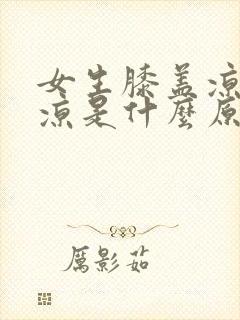 女生膝盖凉
凉是什麼原
厲影茹